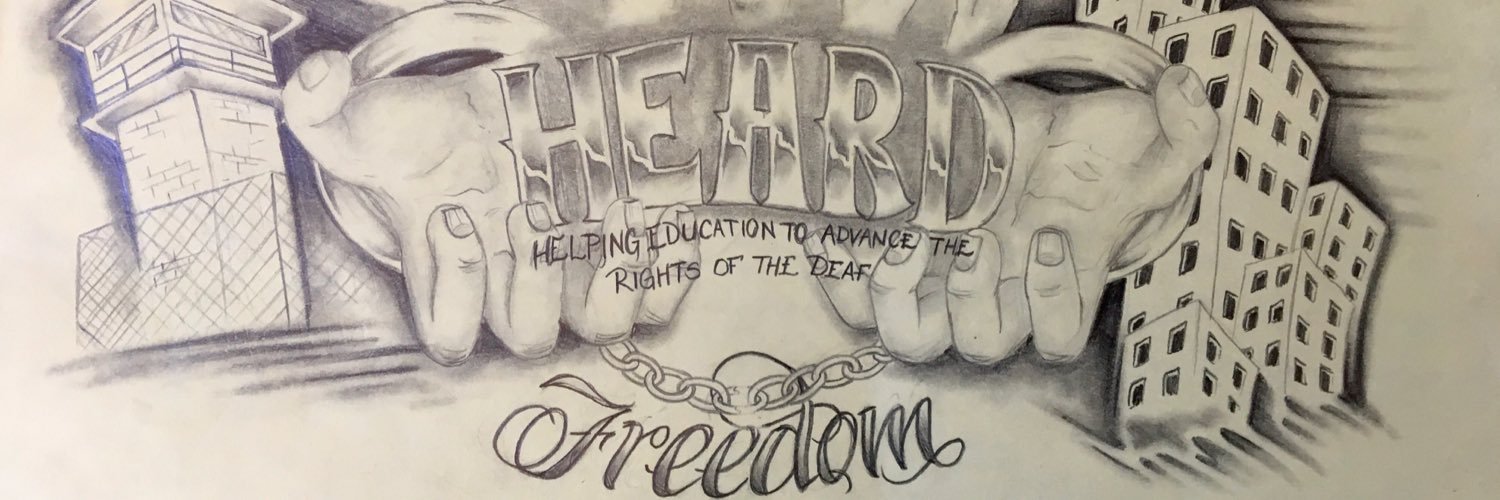 HEARD
HELPING EDUCATION TO ADVANCE THE
RIGHTS OF THE DEAF
Freedom